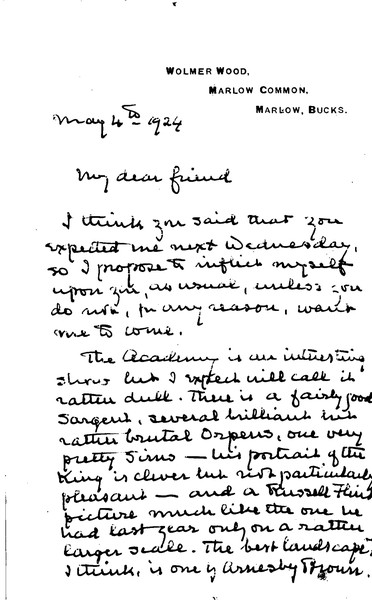 WOLMER WOOD,
MARLOW COMMON,
MARLOW, BUCKS.
May 4th 1924
My dear friend
I think you said that you
expected me next Wednesday,
so I propose to inflict myself
upon you, as usual, unless you
do not, for any reason, want
me to come.
The Academy is an interesting
show but I expect will call it
rather dull. There is a fairly good
Sargent, several brilliant but
rather brutal Orpens, one very
pretty Sims — his portrait of the
King is clever but not particularly
pleasant — and a Russell Flint
picture much like the one he
had last year only on a rather
larger scale. The best landscape,
I think, is one by Arnesby Brown.